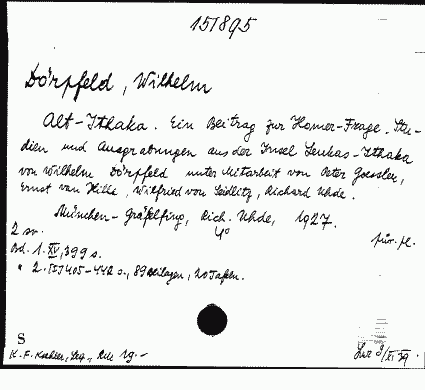 151895
Dörpfeld, Wilhelm
Alt-Ithaka. Ein Beitrag zur Homer-Frage. Stu-
dien und Ausgrabungen aus der Insel Leukas-Ithaka
von Wilhelm Dörpfeld unter Mitarbeit von Peter Goessler,
Ernst van Hille, Wilfried von Seidlitz, Richard Uhde.
München-Gräfelfing, Rich. Uhde, 1927.
2 sv. 4°
Bd. 1. XV, 399 s.
" 2. 405-442 s., 89 Beilagen, 20 Tafeln.
S
K. F. Koehler, 19.-